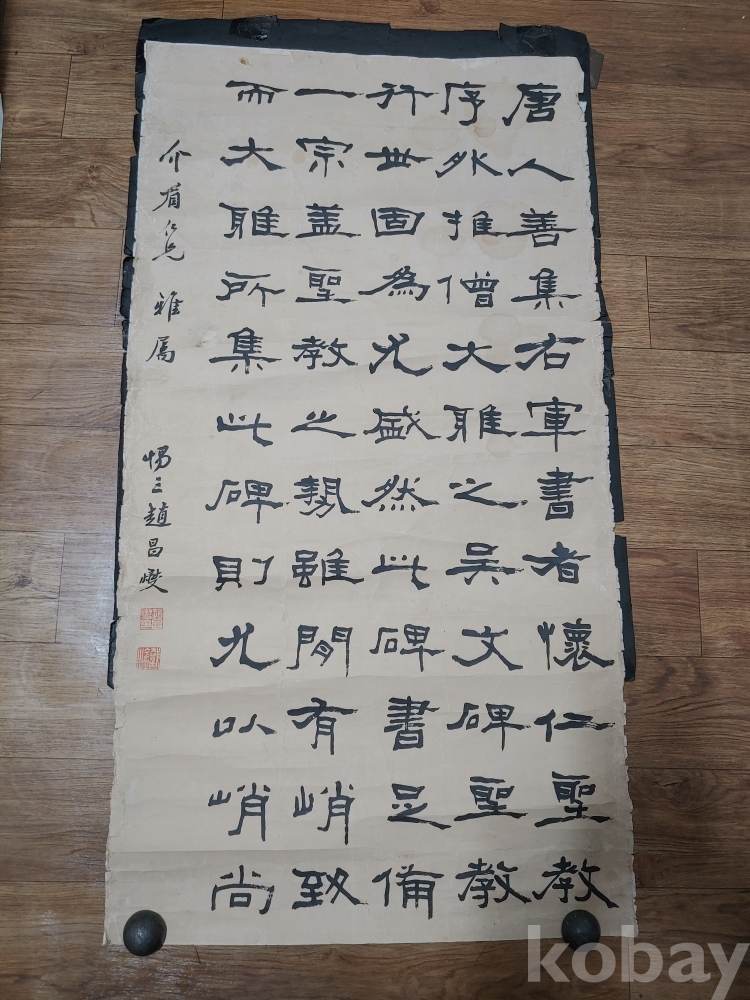 唐人善集右軍書者懷仁聖教
序外推僧大雅之吳文碑聖教
行世固為尤盛然此碑書足備
一宗盖聖教之勢雖間有峭致
而大雅所集此碑則尤以峭尚
介眉仁兄 雅屬
惕三趙昌燮
kobay